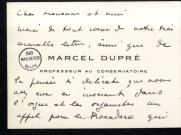 Cher Monsieur et ami
merci de tout cœur de votre très
aimable lettre, ainsi que de
MARCEL DUPRÉ
PROFESSEUR AU CONSERVATOIRE
la pensée si délicate que vous
avez eue en
l'orgue et les organistes un
appel pour le Trocadéro qui